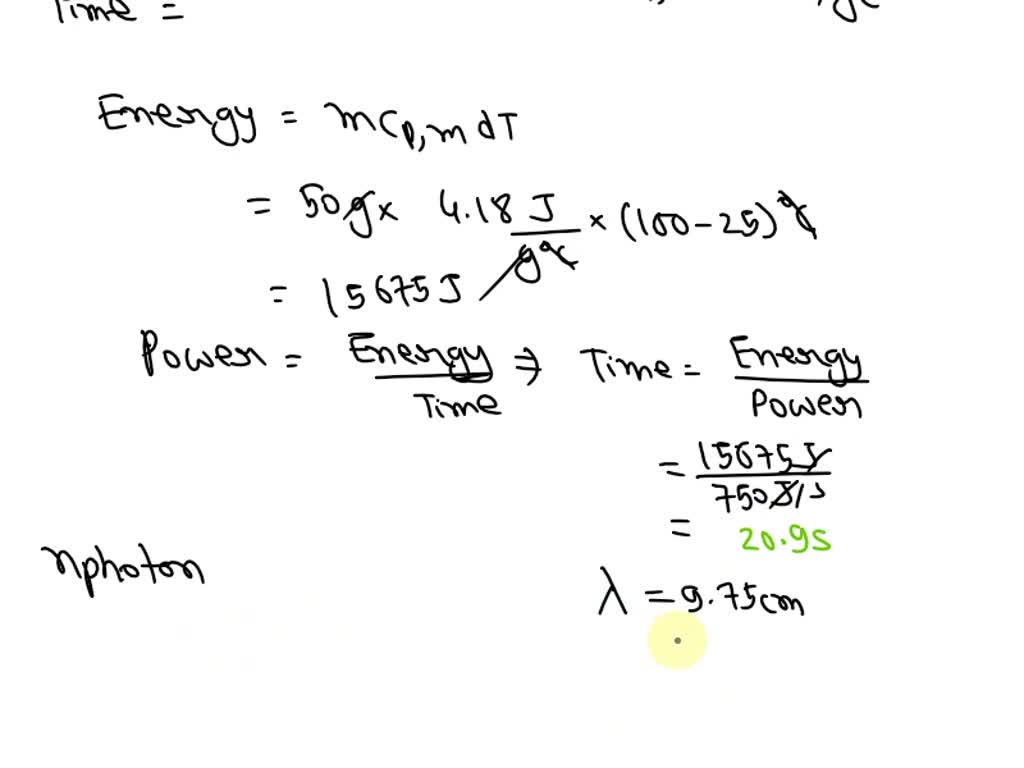 Time =
Energy = mCp,m dT
= 50g × 4.18 J/g°C × (100-25)°C
= 15675J
Power = Energy/Time ⇒ Time = Energy/Power
= 15675J/750J/s
= 20.9s
nphoton
λ = 9.75cm